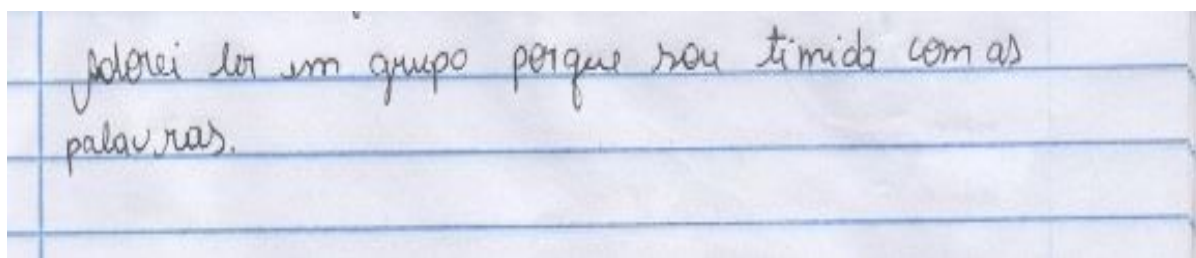 adorei ler em grupo porque sou timida com as
palavras.